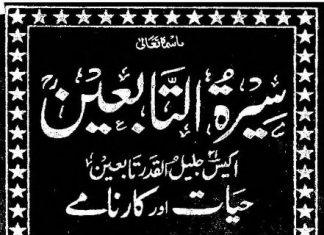 باسمہ تعالیٰ
سِیْرَۃُ التَّابِعِیْن
اکیس جلیل القدر تابعین
حیات اور کارنامے